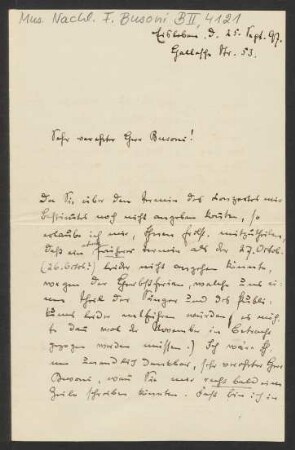 Mus. Nachl. F. Busoni B II, 4121
Eisleben, d. 25. Sept. 97.
Hallesche Str. 53.
Sehr verehrter Herr Busoni!
Da Sie über den Termin des Konzertes mir
Bestimmtes noch nicht angeben konnten, so
erlaube ich mir, Ihnen mitzutheilen,
daß ein früherer Termin als der 27. Octob.
(26. Octob.?) leider nicht angehen könnte,
wegen der Herbstferien, welche uns
einen Theil der Sänger und des Publi-
kums leider entführen würden (es müß-
te dann wol der November in Betracht
gezogen werden müssen.) Ich wäre Ih-
nen dankbar, sehr verehrter Herr
Busoni, wenn Sie mir recht bald eine
Zeile schreiben könnten. Fast bin ich in